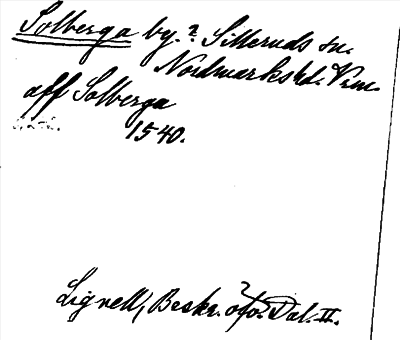 Solberga by. ? Silleruds sn.
Nordmarks hd. Vrm.
aff Solberga
1540.
Lignell, Beskr. ö. Dal. II.